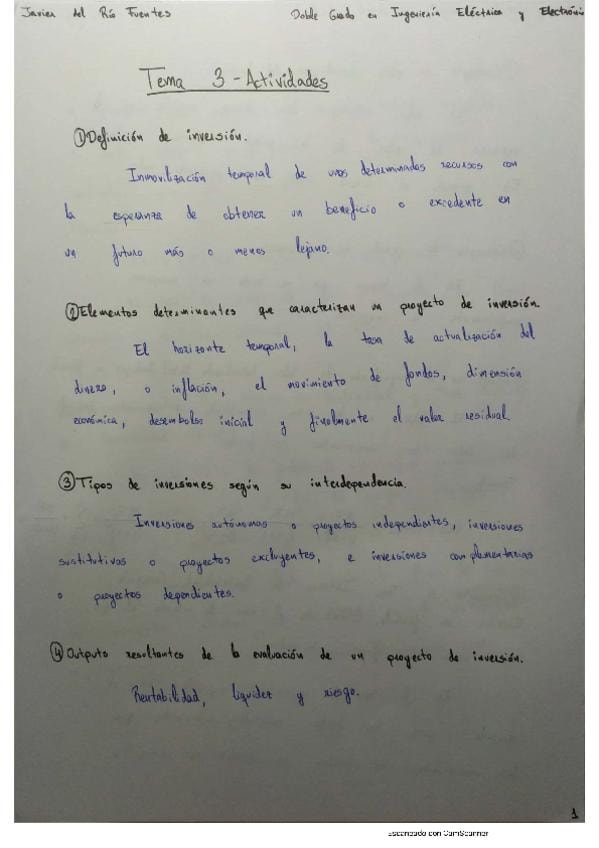 Javier del Río Fuentes Doble Grado en Ingeniería Eléctrica y Electróni
Tema 3 - Actividades
① Definición de inversión.
Inmovilización temporal de unos determinados recursos con
la esperanza de obtener un beneficio o excedente en
un futuro más o menos lejano.
② Elementos determinantes que caracterizan un proyecto de inversión.
El horizonte temporal, la tasa de actualización del
dinero, o inflación, el movimiento de fondos, dimensión
económica, desembolso inicial y finalmente el valor residual
③ Tipos de inversiones según su interdependencia.
Inversiones autónomas o proyectos independientes, inversiones
sustitutivas o proyectos excluyentes, e inversiones complementarias
o proyectos dependientes.
④ Outputs resultantes de la evaluación de un proyecto de inversión.
Rentabilidad, liquidez y riesgo.
1
Escaneado con CamScanner